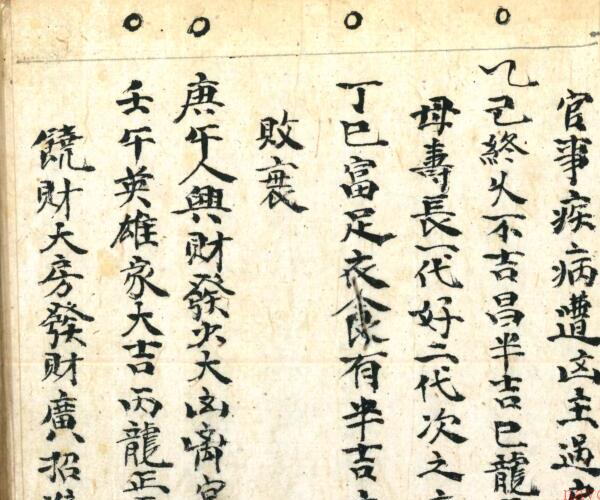 官事疾病遭凶主過
乙巳終久不吉昌半吉巳龍
母壽長一代好二代次之
丁巳富足衣食有半吉
敗衰
庚午人興財發少大凶
壬午英雄家大吉丙龍正
饒財大房發財廣招